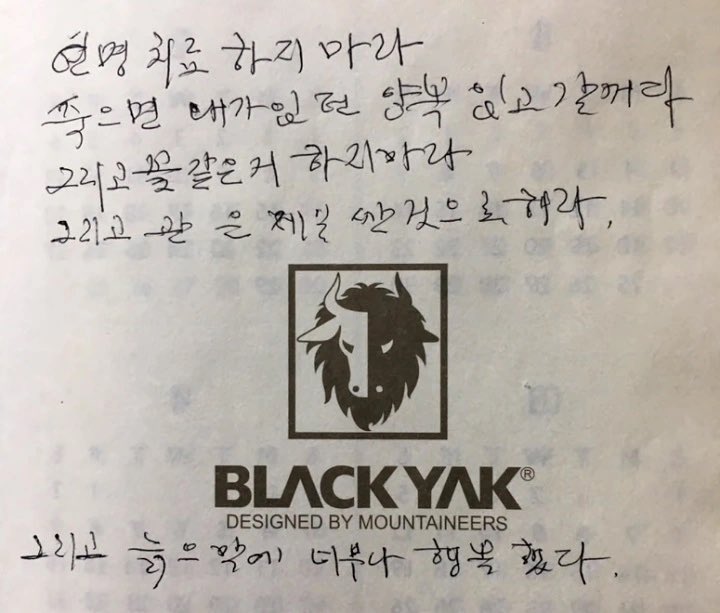 연명 치료 하지 마라
죽으면 내가입던 양복 입고갈꺼다
그리고 꽃같은거 하지마라
그리고 관 은 제일 싼것으로 해라.
BLACKYAK®
DESIGNED BY MOUNTAINEERS
그리고 늙으막에 너무나 행복 했다.